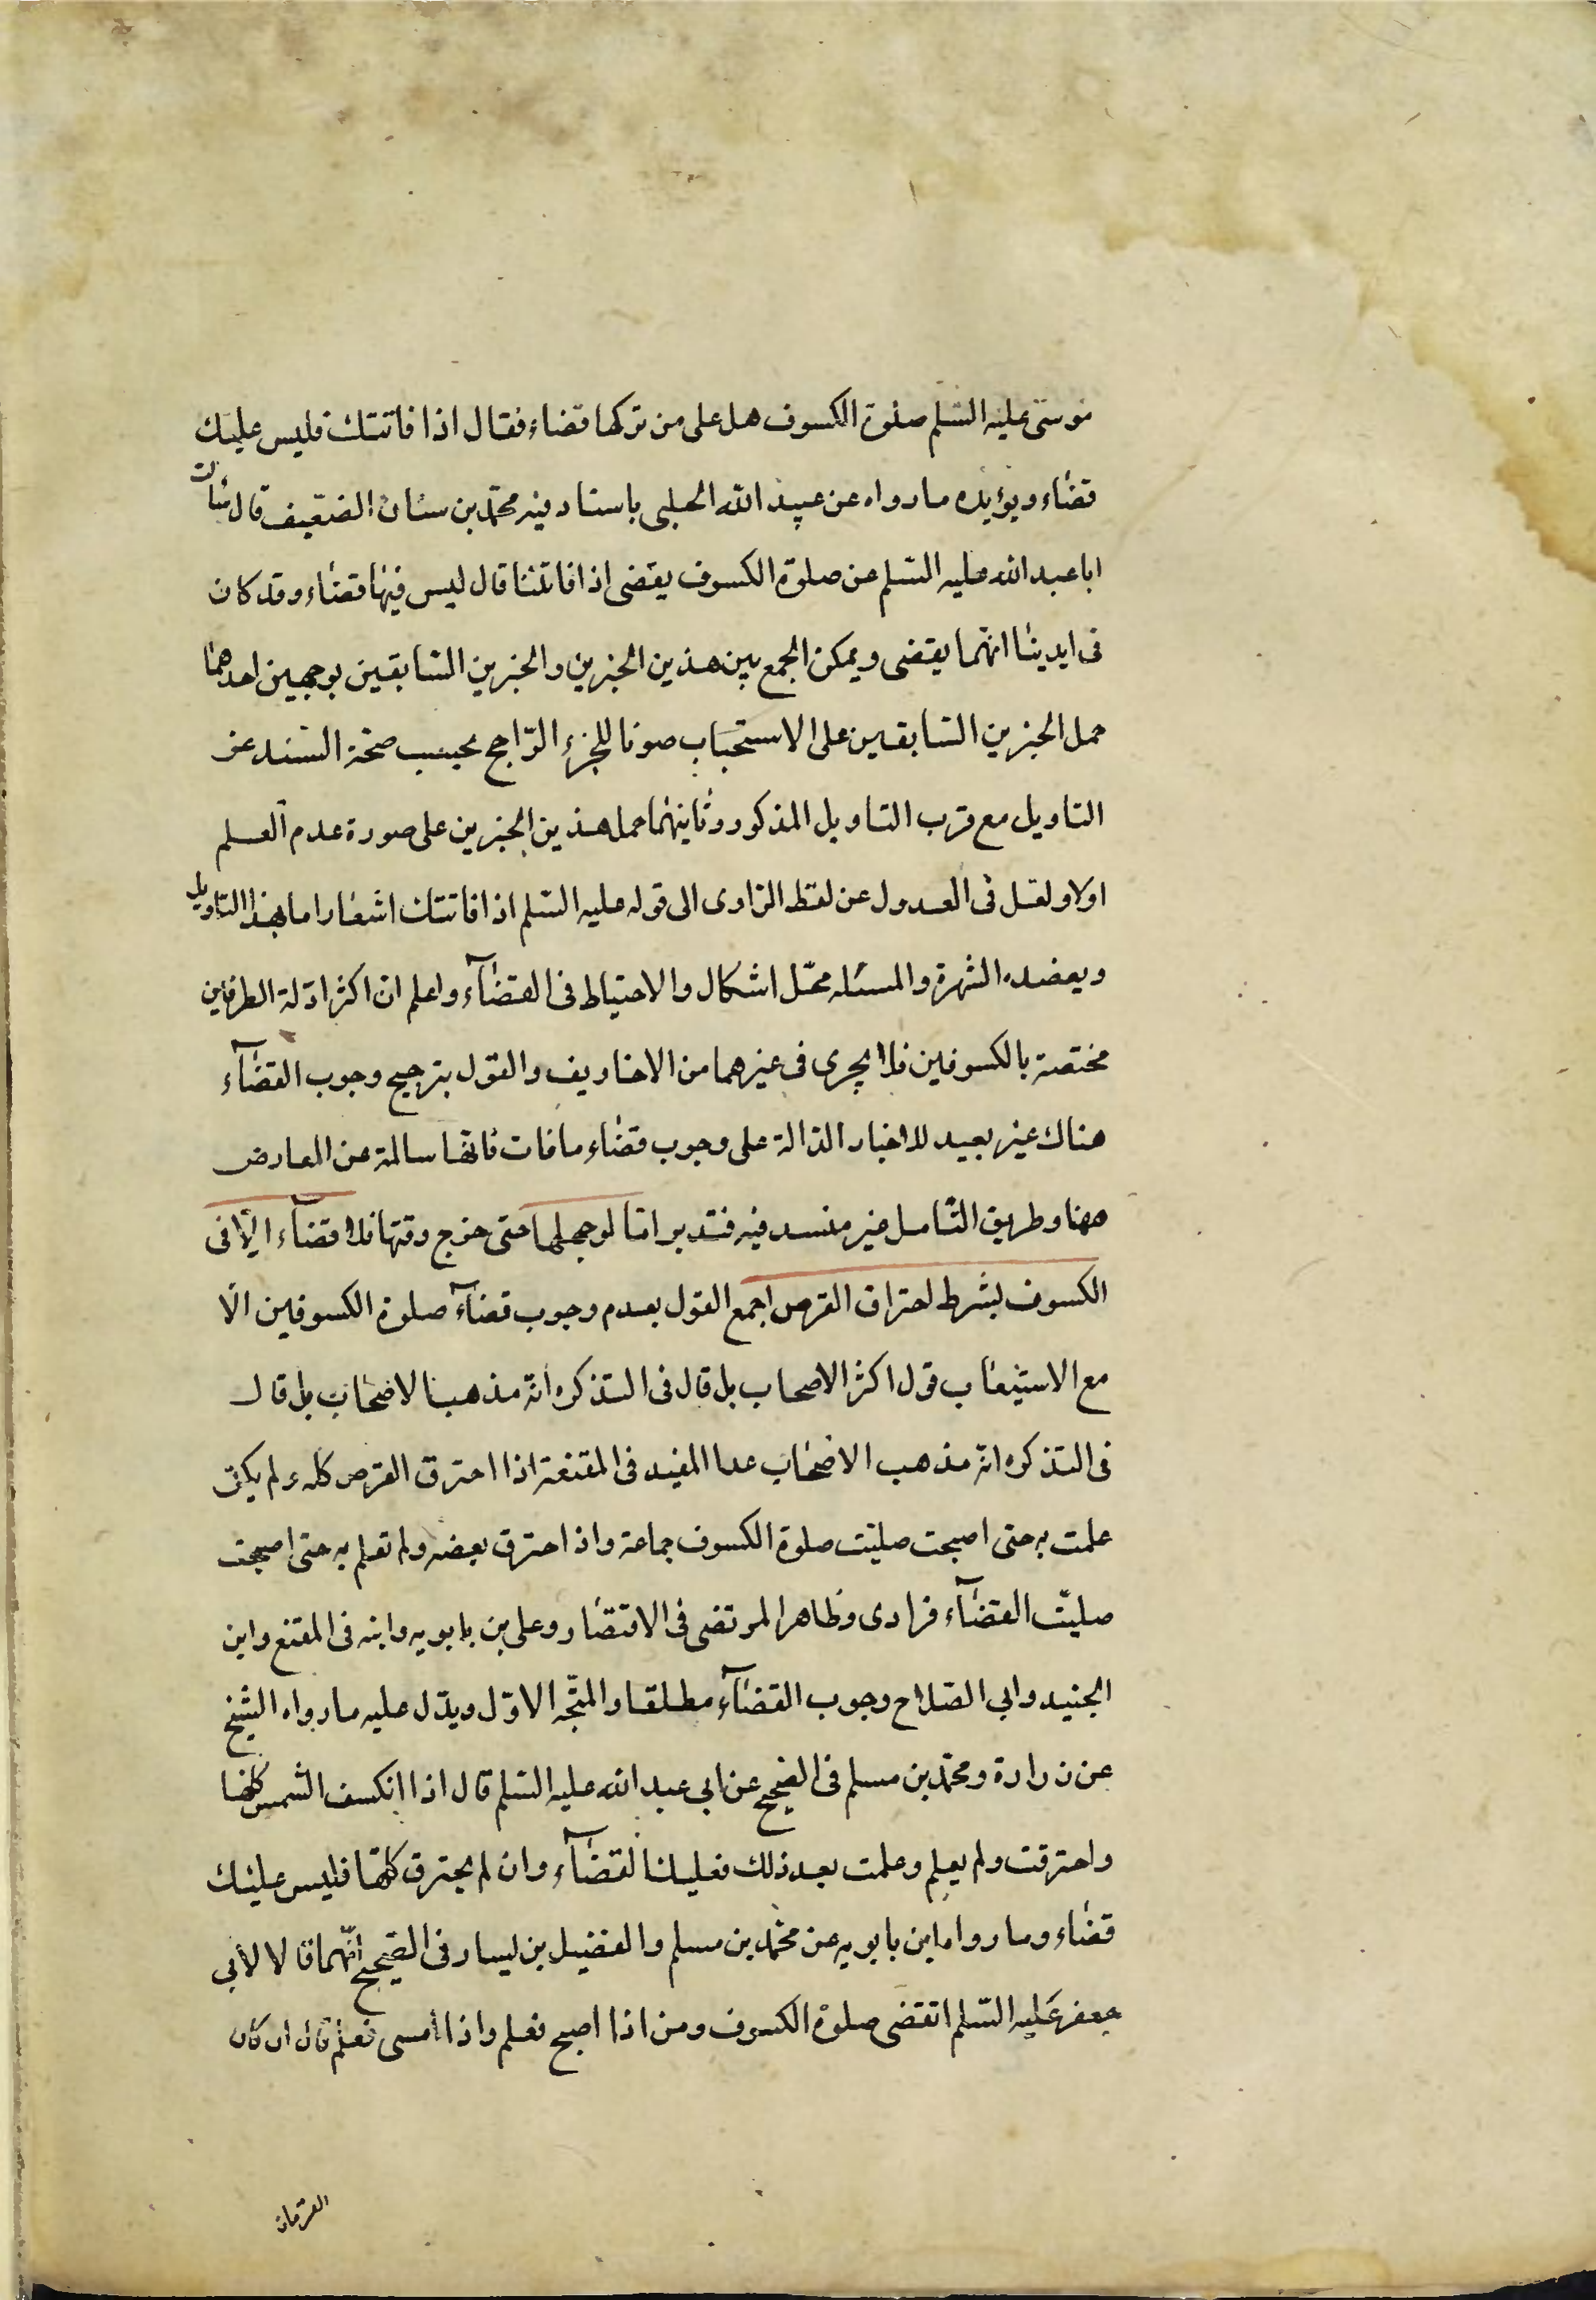 موسى عليه السلم صلوة الكسوف هل على من تركها قضاء فقال اذا فاتتك فليس عليك
قضاء ويؤيده ما رواه عن عبيد الله الحلبي باسناد فيه محمد بن سنان الضعيف قال سالت
ابا عبد الله عليه السلم عن صلوة الكسوف يقضى اذا فاتتنا قال ليس فيها قضاء وقد كان
فى ايدينا انهما يقتضى ويمكن الجمع بين هذين الخبرين والخبرين السابقين بوجهين احدهما
حمل الخبرين السابقين على الاستحباب صونا للخبر الراجح بحسب صحة السند عن
التاويل مع قرب التاويل المذكور وثانيهما حمل هذين الخبرين على صورة عدم العلم
اولا ولعل فى العدول عن لفظ الراوى الى قوله عليه السلم اذا فاتتك اشعارا ما بهذا التاويل
ويعضده الشهرة والمسئله محل اشكال والاحتياط فى القضآء واعلم ان اكثر ادلة الطرفين
مختصة بالكسوفين فلا يجرى فى غيرهما من الاخاويف والقول بترجيح وجوب القضآء
هناك غير بعيد للاخبار الدالة على وجوب قضاء ما فات فانها سالمة عن المعارض
ههنا وطريق التامل غير منسد فيه فتدبر اما لو جهلها حتى خرج وقتها فلا قضآء الا فى
الكسوف بشرط احتراق القرص اجمع القول بعدم وجوب قضآء صلوة الكسوفين الا
مع الاستيعاب قول اكثر الاصحاب بل قال فى التذكره انه مذهب الاصحاب بل قال
فى التذكره انه مذهب الاصحاب عدا المفيد فى المقنعة اذا احترق القرص كله ولم يكن
علمت به حتى اصبحت صليت صلوة الكسوف جماعة واذا حترق بعضه ولم تعلم به حتى اصبحت
صليت القضآء فرادى وظاهر المرتضى فى الاقتصار وعلى بن بابويه وابنه فى المقنع وابن
الجنيد وابي الصلاح وجوب القضآء مطلقا والمتجه الاول ويدل عليه ما رواه الشيخ
عن زرارة ومحمد بن مسلم فى الصحيح عن ابي عبد الله عليه السلم قال اذا انكسف الشمس كلها
واحترقت ولم يعلم وعلمت بعد ذلك فعليك القضآء وان لم يحترق كلها فليس عليك
قضاء وما رواه ابن بابويه عن محمد بن مسلم والفضيل بن يسار فى الصحيح انهما قالا لابي
جعفر عليه السلم اتقضى صلوة الكسوف ومن اذا اصبح فعلم واذا امسى فعلم قال ان كان
القرصان